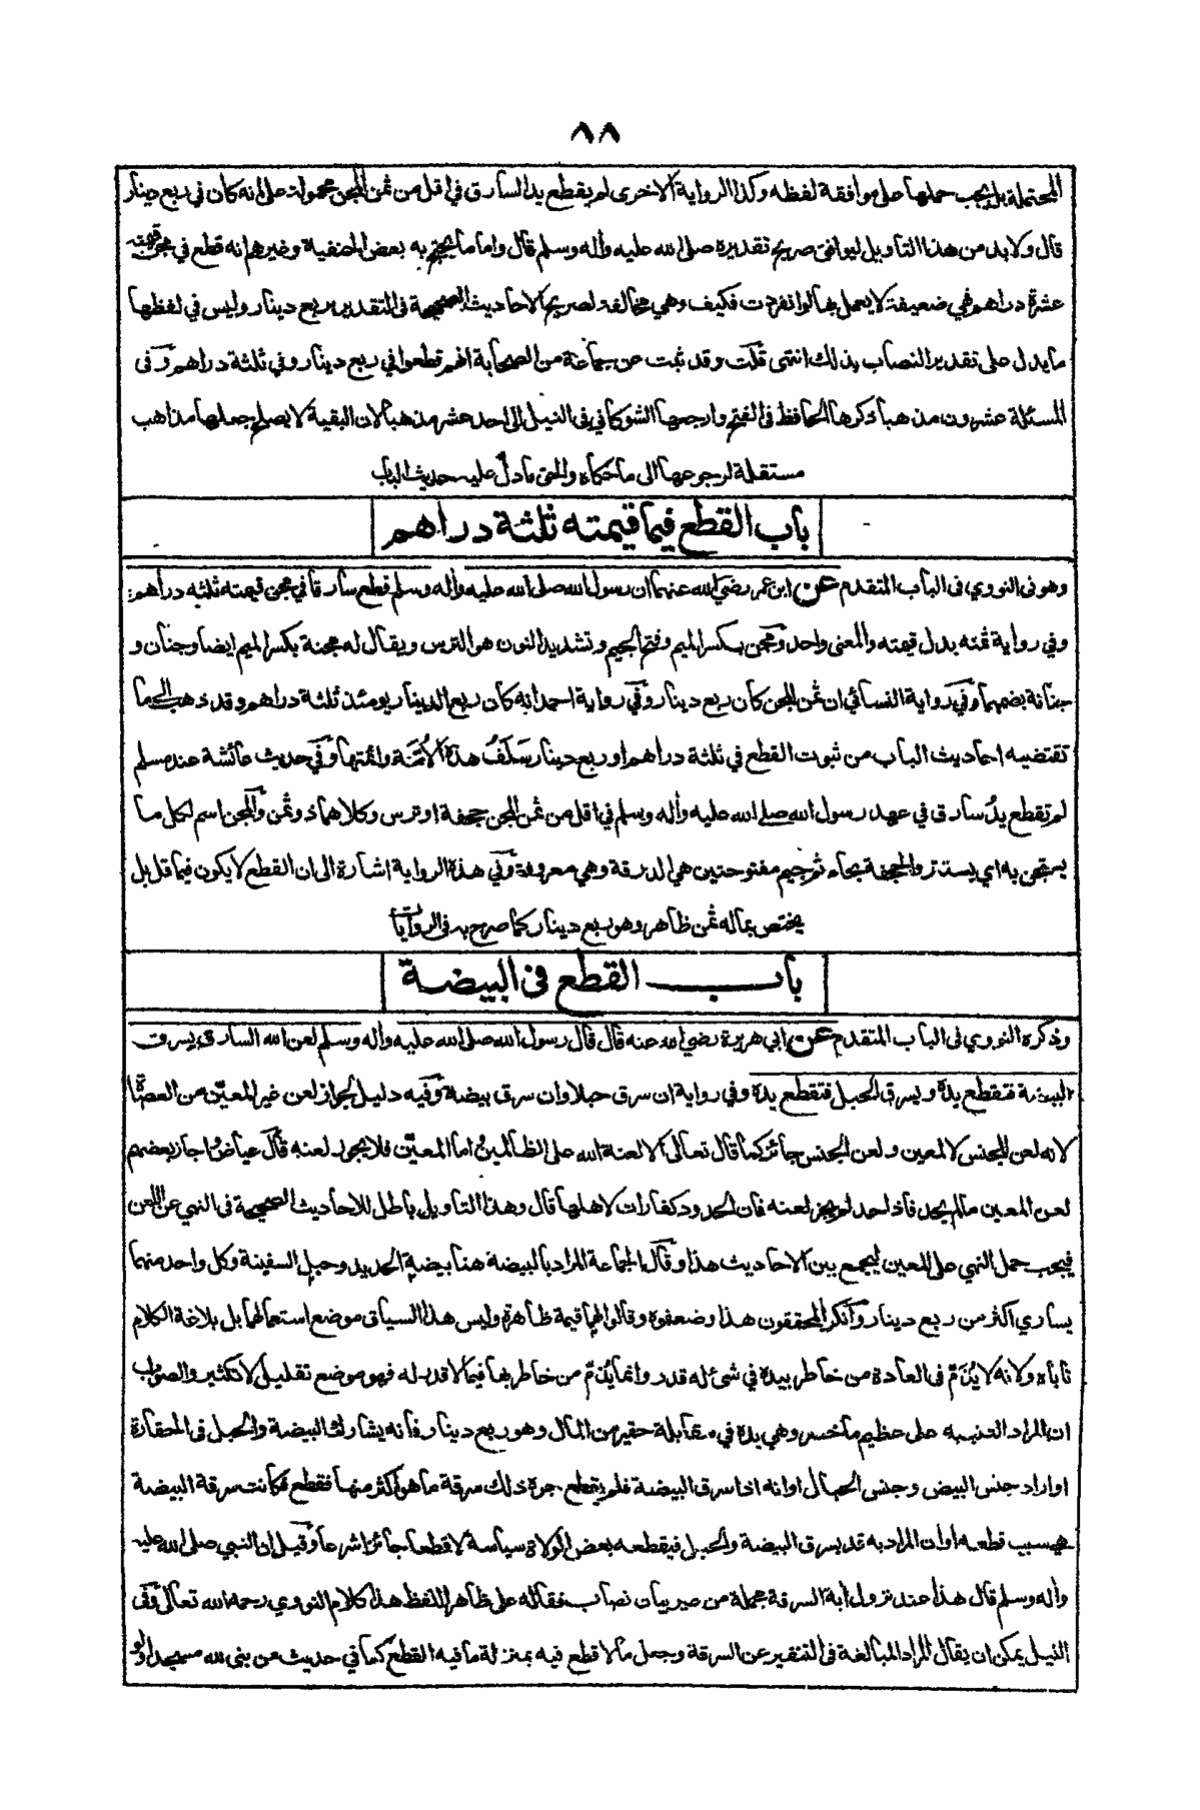 ٨٨
المحتملة بل يجب حملها على موافقة لفظه وكذا الرواية الاخرى لم يقطع يد السارق في اقل من ثمن المجن محمولة على انه كان في ربع دينار
قال ولا بد من هذا التاويل ليوافق صريح تقديره صلى الله عليه واله وسلم قال واما ما يحتج به بعض الحنفية وغيرهم انه قطع في مجن قيمته
عشرة دراهم فهي ضعيفة لا يعمل بها لو انفردت فكيف وهي مخالفة لصريح الاحاديث الصحيحة في التقدير بربع دينار وليس في لفظها
ما يدل على تقدير النصاب بذلك انتهى قلت وقد ثبت عن جماعة من الصحابة انهم قطعوا في ربع دينار وفي ثلثة دراهم وفي
المسئلة عشرون مذهبا ذكرها الحافظ في الفتح وارجعها الشوكاني في النيل الى احد عشر مذهبا لان البقية لا يصلح جعلها مذاهب
مستقلة لرجوعها الى ما حكاه والحق ما دل عليه حديث الباب
باب القطع فيما قيمته ثلثة دراهم
وهو في النووي في الباب المتقدم عن ابن عمر رضي الله عنهما ان رسول الله صلى الله عليه واله وسلم قطع سارقا في مجن قيمته ثلثة دراهم
وفي رواية ثمنه بدل قيمته والمعنى واحد ومجن بكسر الميم وفتح الجيم وتشديد النون هو الترس ويقال له مجنة بكسر الميم ايضا وجنان و
جنانة بضمهما وفي رواية النسائي ان ثمن المجن كان ربع دينار وفي رواية احمد انه كان ربع الدينار يومئذ ثلثة دراهم وقد ذهب الى ما
تقتضيه احاديث الباب من ثبوت القطع في ثلثة دراهم او ربع دينار سلف هذه الامة وائمتها وفي حديث عائشة عند مسلم
لم تقطع يد سارق في عهد رسول الله صلى الله عليه واله وسلم في اقل من ثمن المجن جحفة او ترس وكلاهما ذو ثمن والمجن اسم لكل ما
يستجن به اي يستتر والحجفة بحاء ثم جيم مفتوحتين هي الدرقة وهي معروفة وفي هذه الرواية اشارة الى ان القطع لا يكون فيما قل بل
يختص بماله ثمن ظاهر وهو ربع دينار كما صرح به في الروايات
باب القطع في البيضة
وذكره النووي في الباب المتقدم عن ابي هريرة رضي الله عنه قال قال رسول الله صلى الله عليه واله وسلم لعن الله السارق يسرق
البيضة فتقطع يده ويسرق الحبل فتقطع يده وفي رواية ان سرق حبلا وان سرق بيضة وفيه دليل لجواز لعن غير المعين من العصاة
لانه لعن للجنس لا لمعين ولعن الجنس جائز كما قال تعالى الا لعنة الله على الظالمين اما المعين فلا يجوز لعنه قال عياض اجاز بعضهم
لعن المعين ما لم يحد فاذا حد لم يجز لعنه فان الحدود كفارات لاهلها قال وهذا التاويل باطل للاحاديث الصحيحة في النهي عن اللعن
فيجب حمل النهي على المعين ليجمع بين الاحاديث هذا وقال جماعة المراد بالبيضة هنا بيضة الحديد وحبل السفينة وكل واحد منهما
يساوي اكثر من ربع دينار وانكر المحققون هذا وضعفوه وقالوا لهما قيمة ظاهرة وليس هذا السياق موضع استعمالهما بل بلاغة الكلام
تاباه ولانه لا يذم في العادة من خاطر بيده في شئ له قدر وانما يذم من خاطر بها فيما لا قدر له فهو موضع تقليل لا تكثير والصواب
ان المراد التنبيه على عظيم ما خسر وهي يده في مقابلة حقير من المال وهو ربع دينار فانه يشارك البيضة والحبل في الحقارة
او اراد جنس البيض وجنس الحبال او انه اذا سرق البيضة فلم يقطع جره ذلك سرقة ما هو اكثر منها فقطع فكانت سرقة البيضة
هي سبب قطعه او ان المراد به قد يسرق البيضة والحبل فيقطعه بعض الولاة سياسة لا قطعا جائزا شرعا وقيل ان النبي صلى الله عليه
واله وسلم قال هذا عند نزول اية السرقة مجملة من غير بيان نصاب فقاله على ظاهر اللفظ هذا كلام النووي رحمه الله تعالى وفي
النيل يمكن ان يقال المراد المبالغة في التنفير عن السرقة وجعل ما لا قطع فيه بمنزلة ما فيه القطع كما في حديث من بنى لله مسجدا ولو